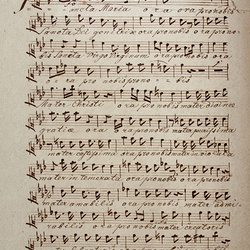 ancta Maria ora ora pro nobis
Sancta Dei genitrix ora pro nobis ora pro no-
bis Sancta Virgo Virginum ora pro nobis
o- ra pro nobis pro no- bis
Mater Christi ora pro nobis mater divinae
gratiae ora ora pro nobis mater purissima
mater castissima ora pro nobis mater inviolata
mater intemerata ora pro nobis ora pro nobis
mater amabilis ora pro nobis mater admi-
rabilis ora pro nobis mater creatoris